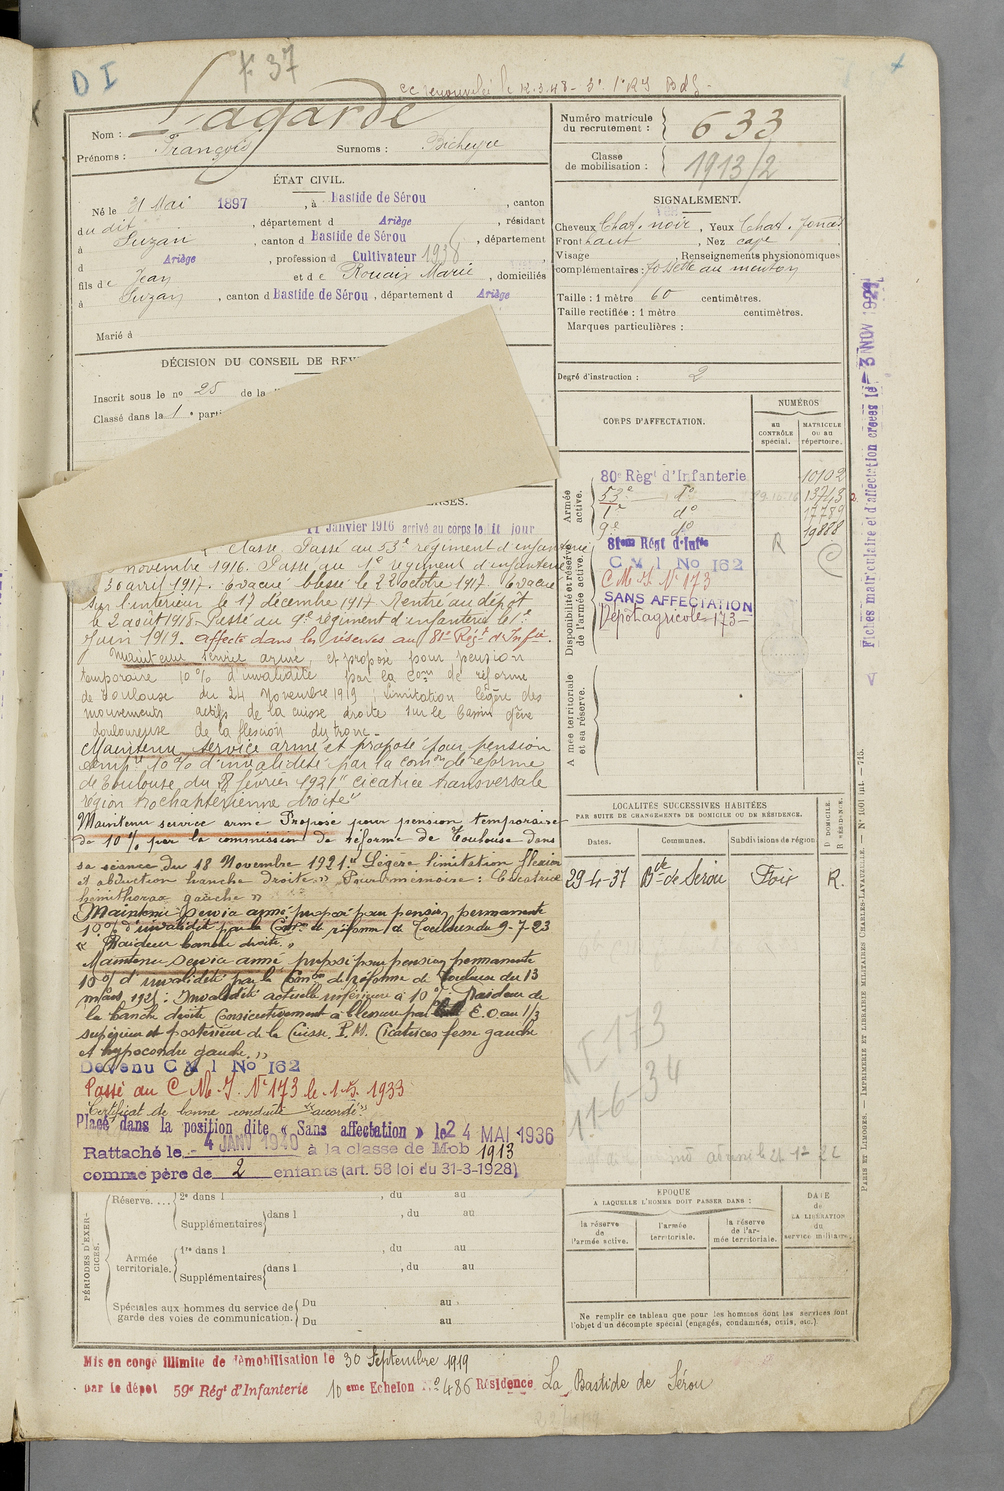 D I
F 37
cc renouvelé le 12.3.48 - 3e 1e RJ BdS -
Nom : Lagarde
Prénoms : François Surnoms : Bicheyre
ÉTAT CIVIL.
Né le 21 Mai 1897, à Bastide de Sérou, canton
du dit, département d Ariège, résidant
à Suzan, canton d Bastide de Sérou, département
d Ariège, profession d Cultivateur 1938
fils de Jean et de Rouaix Marie, domiciliés
à Suzan, canton d Bastide de Sérou, département d Ariège
Marié à
DÉCISION DU CONSEIL DE REV
Inscrit sous le no 25 de la
Classé dans la 1e parti
Janvier 1916 arrivé au corps le dit jour
classe. Passé au 53e régiment d'infanterie
novembre 1916. Passé au 1e régiment d'infanterie
30 avril 1917. Evacué blessé le 22 octobre 1917. Evacué
sur l'intérieur le 17 décembre 1917 Rentré au dépôt
le 2 août 1918 Passé au 9e régiment d'infanterie le 1er
Juin 1919. affecté dans les réserves au 81e Régt d'Infie.
Maintenu service armé, et proposé pour pension
temporaire 10% d'invalidité par la Com de réforme
de Toulouse du 24 Novembre 1919 ; limitation légère des
mouvements actifs de la cuisse droite sur le bassin gêne
douloureuse de la flexion du tronc -
Maintenu service armé et proposé pour pension
temp re 10% d'invalidité par la comon de réforme
de Toulouse du 8 février 1921 "cicatrice transversale
région trochantérienne droite"
Maintenu service armé Proposé pour pension temporaire
de 10% par la commission de réforme de Toulouse dans
sa séance du 18 Novembre 1921 "Légère limitation flexion
et abduction hanche droite" Pour mémoire : Cicatrice
hémithorax gauche"
Maintenu service armé proposé pour pension permanente
10% d'invalidité par la Comon de réforme de Toulouse du 9-7-23
" Raideur hanche droite. "
Maintenu service armé proposé pour pension permanente
10% d'invalidité par la Comon de réforme de Toulouse du 13
mars 192 : Invalidité actuelle inférieure à 10% Raideur de
la hanche droite Consécutivement à blessure par E.O au 1/3
supérieur et postérieur de la Cuisse. P.M. Cicatrices fesse gauche
et hypocondre gauche. "
Devenu C M I No 162
Passé au C.M.I. No 173 le 1.5.1933
Certificat de bonne conduite "accordé"
Placé dans la position dite « Sans affectation » le 24 MAI 1936
Rattaché le 4 JANV 1940 à la classe de Mob 1913
comme père de 2 enfants (art. 58 loi du 31-3-1928)
PÉRIODES D'EXERCICES.
Réserve.... 2e dans l , du au
Supplémentaires dans l , du au
Armée territoriale. 1re dans l , du au
Supplémentaires dans l , du au
Spéciales aux hommes du service de garde des voies de communication. Du au
Du au
Mis en congé illimité de démobilisation le 30 Septembre 1919
par le dépôt 59e Régt d'Infanterie 10 eme Echelon No 486 Résidence La Bastide de Sérou
Numéro matricule du recrutement : 633
Classe de mobilisation : 1913/2
SIGNALEMENT.
Cheveux Chat. noir, Yeux Chat. foncé
Front haut, Nez cave
Visage , Renseignements physionomiques
complémentaires : fossette au menton
Taille : 1 mètre 60 centimètres.
Taille rectifiée : 1 mètre centimètres.
Marques particulières :
Degré d'instruction : 2
CORPS D'AFFECTATION.
NUMÉROS
au CONTRÔLE spécial.
MATRICULE ou au répertoire.
Armée active.
80e Régt d'Infanterie 10102
53e do 13743
1e do 17789
9e do 19888
Disponibilité et réserve de l'armée active.
81eme Régt d'Infie R
C M I No 162
C M I No 173
SANS AFFECTATION
Dépôt agricole 173
Armée territoriale et sa réserve.
LOCALITÉS SUCCESSIVES HABITÉES
PAR SUITE DE CHANGEMENTS DE DOMICILE OU DE RÉSIDENCE.
Dates. Communes. Subdivisions de région. D. DOMICILE. R. RÉSIDENCE.
29-4-37 Bde de Sérou Foix R.
I 173
11-6-34
ÉPOQUE
A LAQUELLE L'HOMME DOIT PASSER DANS :
la réserve de l'armée active. l'armée territoriale. la réserve de l'armée territoriale.
DATE de LA LIBÉRATION du service militaire.
Ne remplir ce tableau que pour les hommes dont les services font
l'objet d'un décompte spécial (engagés, condamnés, omis, etc.)
Fiches matriculaire et d'affectation créées le 3 NOV 192
PARIS ET LIMOGES. — IMPRIMERIE ET LIBRAIRIE MILITAIRES CHARLES-LAVAUZELLE. — No 1001 int. — 715.